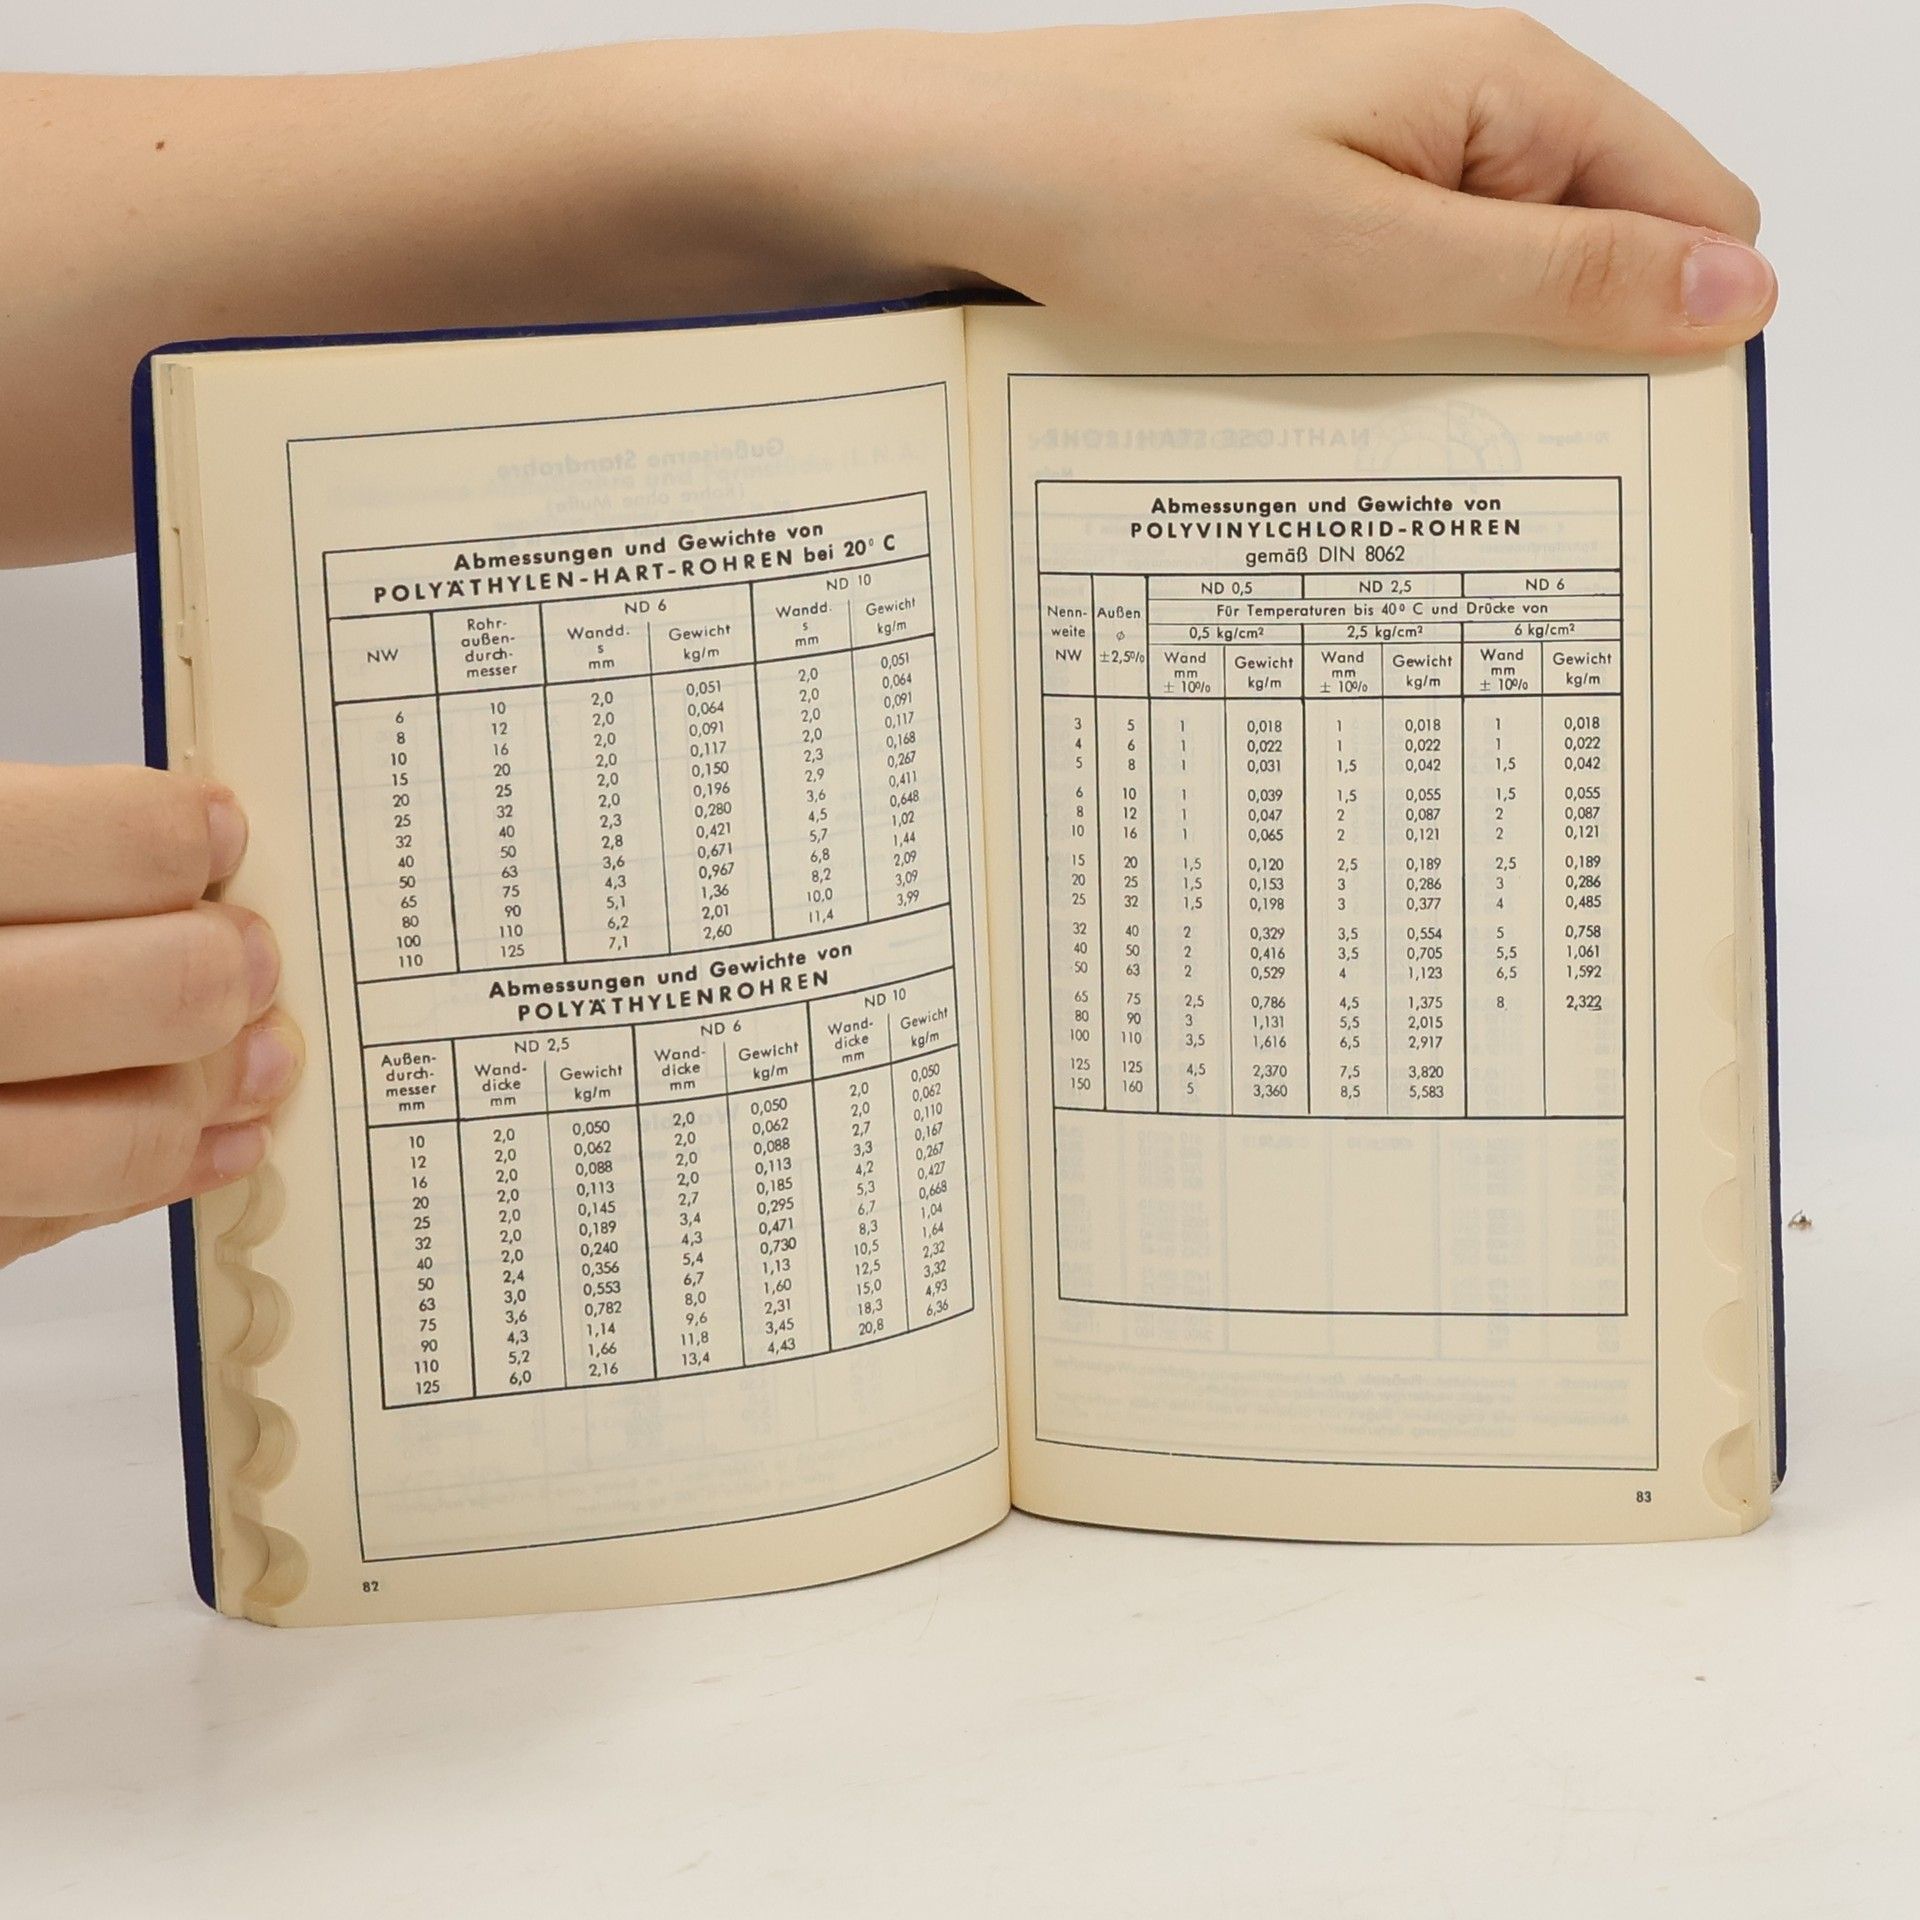 Abmessungen und Gewichte von
POLYÄTHYLEN-HART-ROHREN bei 20° C
NW Rohr-außen-durch-messer ND 6 ND 10
Wandd. s mm Gewicht kg/m Wandd. s mm Gewicht kg/m
6 10 2,0 0,051 2,0 0,051
8 12 2,0 0,064 2,0 0,064
10 16 2,0 0,091 2,0 0,091
15 20 2,0 0,117 2,0 0,117
20 25 2,0 0,150 2,3 0,168
25 32 2,0 0,196 2,9 0,267
32 40 2,3 0,280 3,6 0,411
40 50 2,8 0,421 4,5 0,648
50 63 3,6 0,671 5,7 1,02
65 75 4,3 0,967 6,8 1,44
80 90 5,1 1,36 8,2 2,09
100 110 6,2 2,01 10,0 3,09
110 125 7,1 2,60 11,4 3,99
Abmessungen und Gewichte von
POLYÄTHYLENROHREN
Außen-durch-messer mm ND 2,5 ND 6 ND 10
Wand-dicke mm Gewicht kg/m Wand-dicke mm Gewicht kg/m Wand-dicke mm Gewicht kg/m
10 2,0 0,050 2,0 0,050 2,0 0,050
12 2,0 0,062 2,0 0,062 2,0 0,062
16 2,0 0,088 2,0 0,088 2,7 0,110
20 2,0 0,113 2,0 0,113 3,3 0,167
25 2,0 0,145 2,7 0,185 4,2 0,267
32 2,0 0,189 3,4 0,295 5,3 0,427
40 2,0 0,240 4,3 0,471 6,7 0,668
50 2,4 0,356 5,4 0,730 8,3 1,04
63 3,0 0,553 6,7 1,13 10,5 1,64
75 3,6 0,782 8,0 1,60 12,5 2,32
90 4,3 1,14 9,6 2,31 15,0 3,32
110 5,2 1,66 11,8 3,45 18,3 4,93
125 6,0 2,16 13,4 4,43 20,8 6,36
82
Abmessungen und Gewichte von
POLYVINYLCHLORID-ROHREN
gemäß DIN 8062
Nenn-weite NW Außen ø ±2,5% ND 0,5 ND 2,5 ND 6
Für Temperaturen bis 40° C und Drücke von
0,5 kg/cm² 2,5 kg/cm² 6 kg/cm²
Wand mm ± 10% Gewicht kg/m Wand mm ± 10% Gewicht kg/m Wand mm ± 10% Gewicht kg/m
3 5 1 0,018 1 0,018 1 0,018
4 6 1 0,022 1 0,022 1 0,022
5 8 1 0,031 1,5 0,042 1,5 0,042
6 10 1 0,039 1,5 0,055 1,5 0,055
8 12 1 0,047 2 0,087 2 0,087
10 16 1 0,065 2 0,121 2 0,121
15 20 1,5 0,120 2,5 0,189 2,5 0,189
20 25 1,5 0,153 3 0,286 3 0,286
25 32 1,5 0,198 3 0,377 4 0,485
32 40 2 0,329 3,5 0,554 5 0,758
40 50 2 0,416 3,5 0,705 5,5 1,061
50 63 2 0,529 4 1,123 6,5 1,592
65 75 2,5 0,786 4,5 1,375 8 2,322
80 90 3 1,131 5,5 2,015
100 110 3,5 1,616 6,5 2,917
125 125 4,5 2,370 7,5 3,820
150 160 5 3,360 8,5 5,583
83